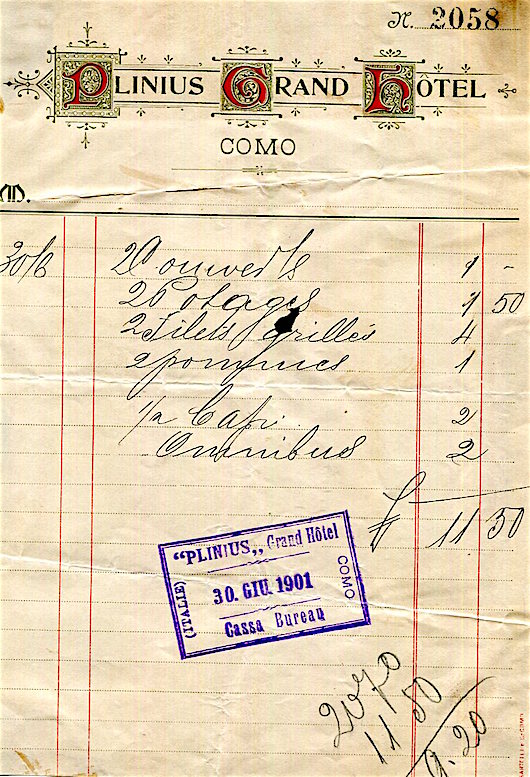 N. 2058
PLINIUS GRAND HÔTEL
COMO
M.
30/6 2 Couverts 1 -
2 Potages 1 50
2 Filets grillés 4
2 pommes 1
1/2 Capri 2
Omnibus 2
£ 11 50
"PLINIUS„ Grand Hôtel
(ITALIE)
COMO
30. GIU. 1901
Cassa Bureau
20 70
11 50
9. 20